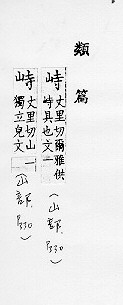 類篇
峙 丈里切爾雅供
峙具也文一
(山部
峙 丈里切山一
獨立皃文
(山部